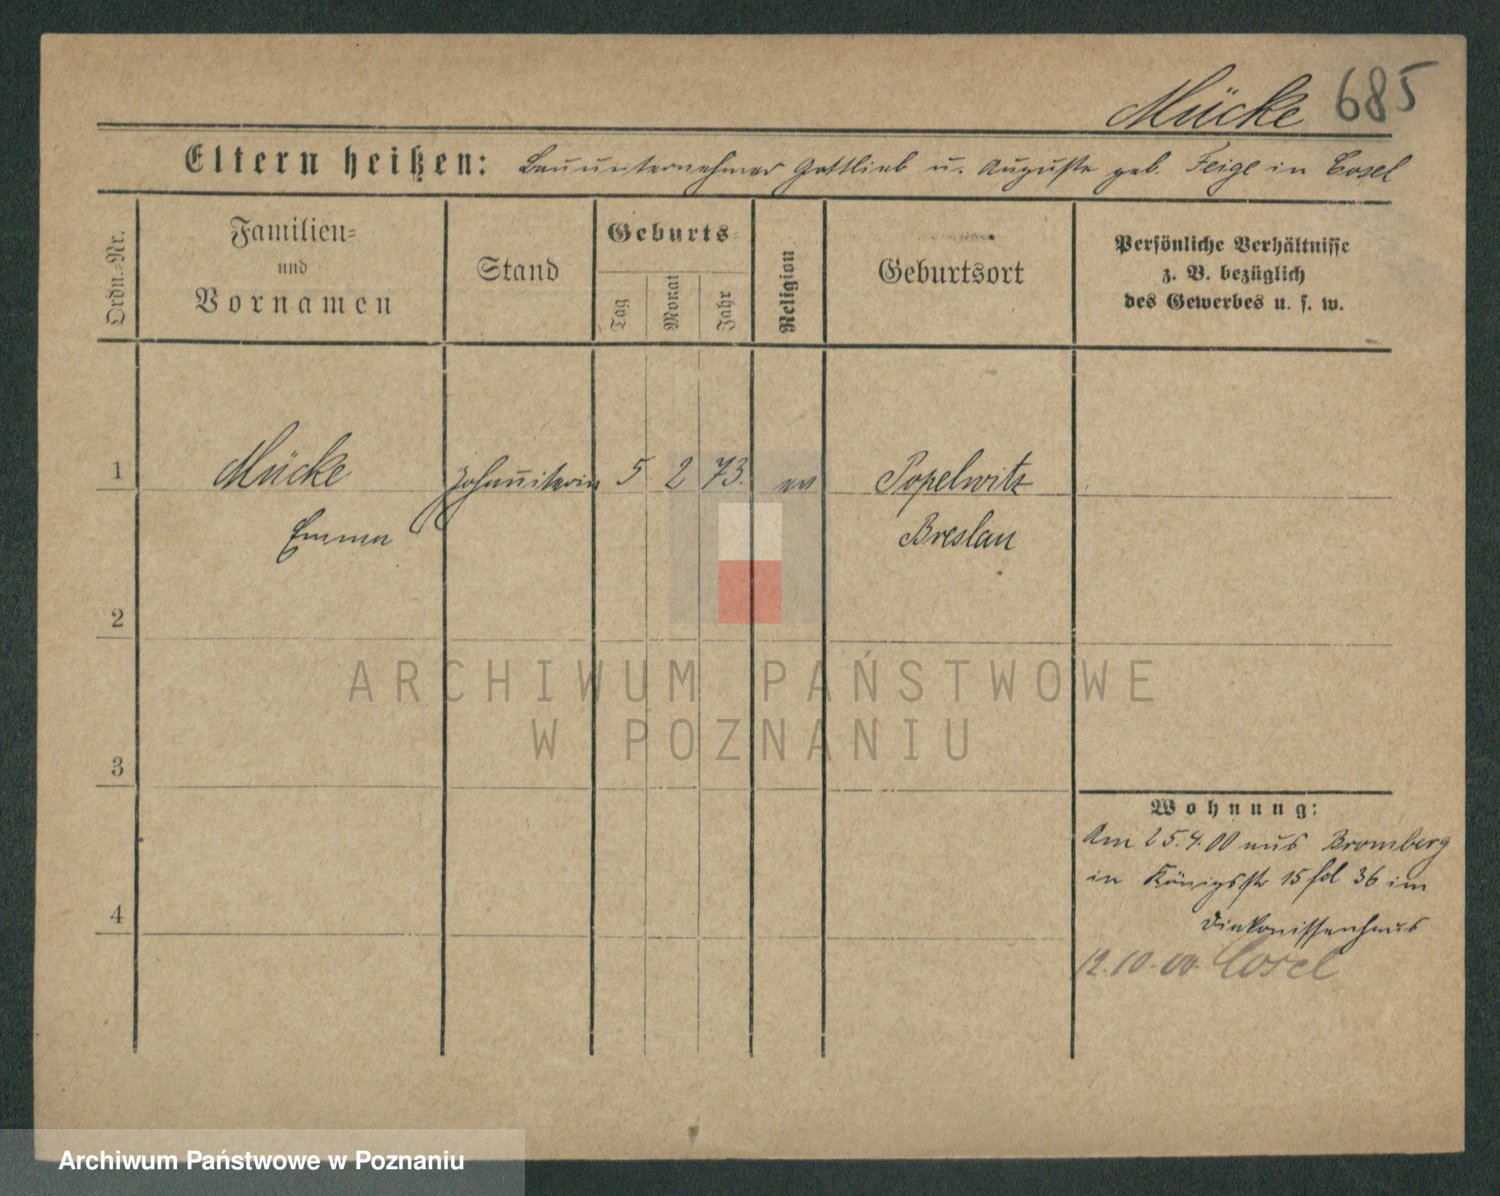 Mücke 685
Eltern heißen: Bauunternehmer Gottlieb u. Auguste geb. Feige in Cosel
Ordn.-Nr.
Familien-
und
Vornamen
Stand
Geburts-
Tag
Monat
Jahr
Religion
Geburtsort
Persönliche Verhältnisse
z. B. bezüglich
des Gewerbes u. s. w.
1 Mücke Johanniterin 5 2 73. ev Popelwitz
Emma Breslau
2
ARCHIWUM PAŃSTWOWE
W POZNANIU
3
Wohnung:
Am 25.4.00 aus Bromberg
in Königsstr 15 fol 36 im
4
Diakonissenhaus
12.10.00. Cosel
Archiwum Państwowe w Poznaniu